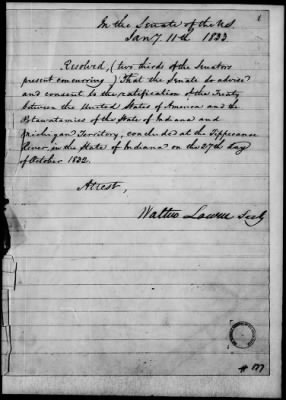 In the Senate of the U.S.
Jany. 11th 1833
Resolved, (two thirds of the Senators
present concurring) That the Senate do advise
and consent to the ratification of the Treaty
between the United States of America and the
Potawatamies of the State of Indiana and
Michigan Territory, concluded at the Tippecanoe
River, in the State of Indiana on the 27th day
of October 1832.
Attest,
Walter Lowrie Secy
# 177